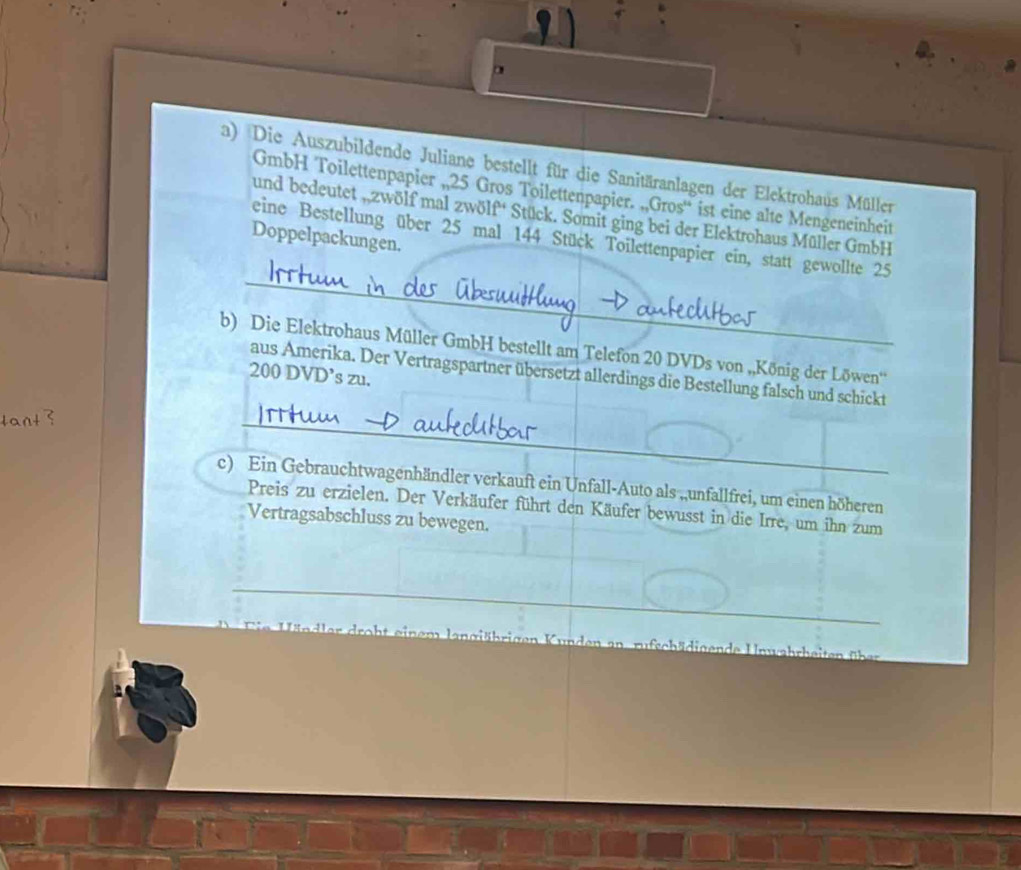 a) Die Auszubildende Juliane bestellt für die Sanitäranlagen der Elektrohaus Müller
GmbH Toilettenpapier „25 Gros Toilettenpapier. „Gros“ ist eine alte Mengeneinheit
und bedeutet „zwölf mal zwölf“ Stück. Somit ging bei der Elektrohaus Müller GmbH
eine Bestellung über 25 mal 144 Stück Toilettenpapier ein, statt gewollte 25
Doppelpackungen.
Irrtum in der Übermittlung → anfechtbar
b) Die Elektrohaus Müller GmbH bestellt am Telefon 20 DVDs von „König der Löwen“
aus Amerika. Der Vertragspartner übersetzt allerdings die Bestellung falsch und schickt
200 DVD’s zu.
tant?
Irrtum → anfechtbar
c) Ein Gebrauchtwagenhändler verkauft ein Unfall-Auto als „unfallfrei, um einen höheren
Preis zu erzielen. Der Verkäufer führt den Käufer bewusst in die Irre, um ihn zum
Vertragsabschluss zu bewegen.
Ein Händler droht einem langjährigen Kunden an, rufschädigende Unwahrheiten über